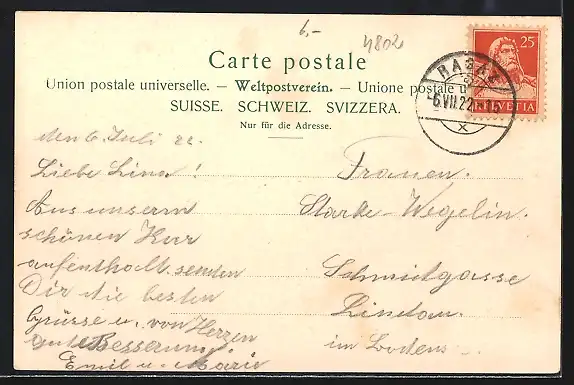 6,-
4802
Carte postale
Union postale universelle. — Weltpostverein. — Unione postale u
SUISSE. SCHWEIZ. SVIZZERA.
Nur für die Adresse.
25
HELVETIA
RAGAZ
-6.VII.22.
X
den 6 Juli 22.
Liebe Lina!
Aus unserm
schönen Kur
aufenthalt senden
Dir die besten
Grüsse u. von Herzen
gute Besserung.
Emil u. Marie
Frauen.
Starke-Wegelin.
Schmidgasse
Lindau.
im Bodens